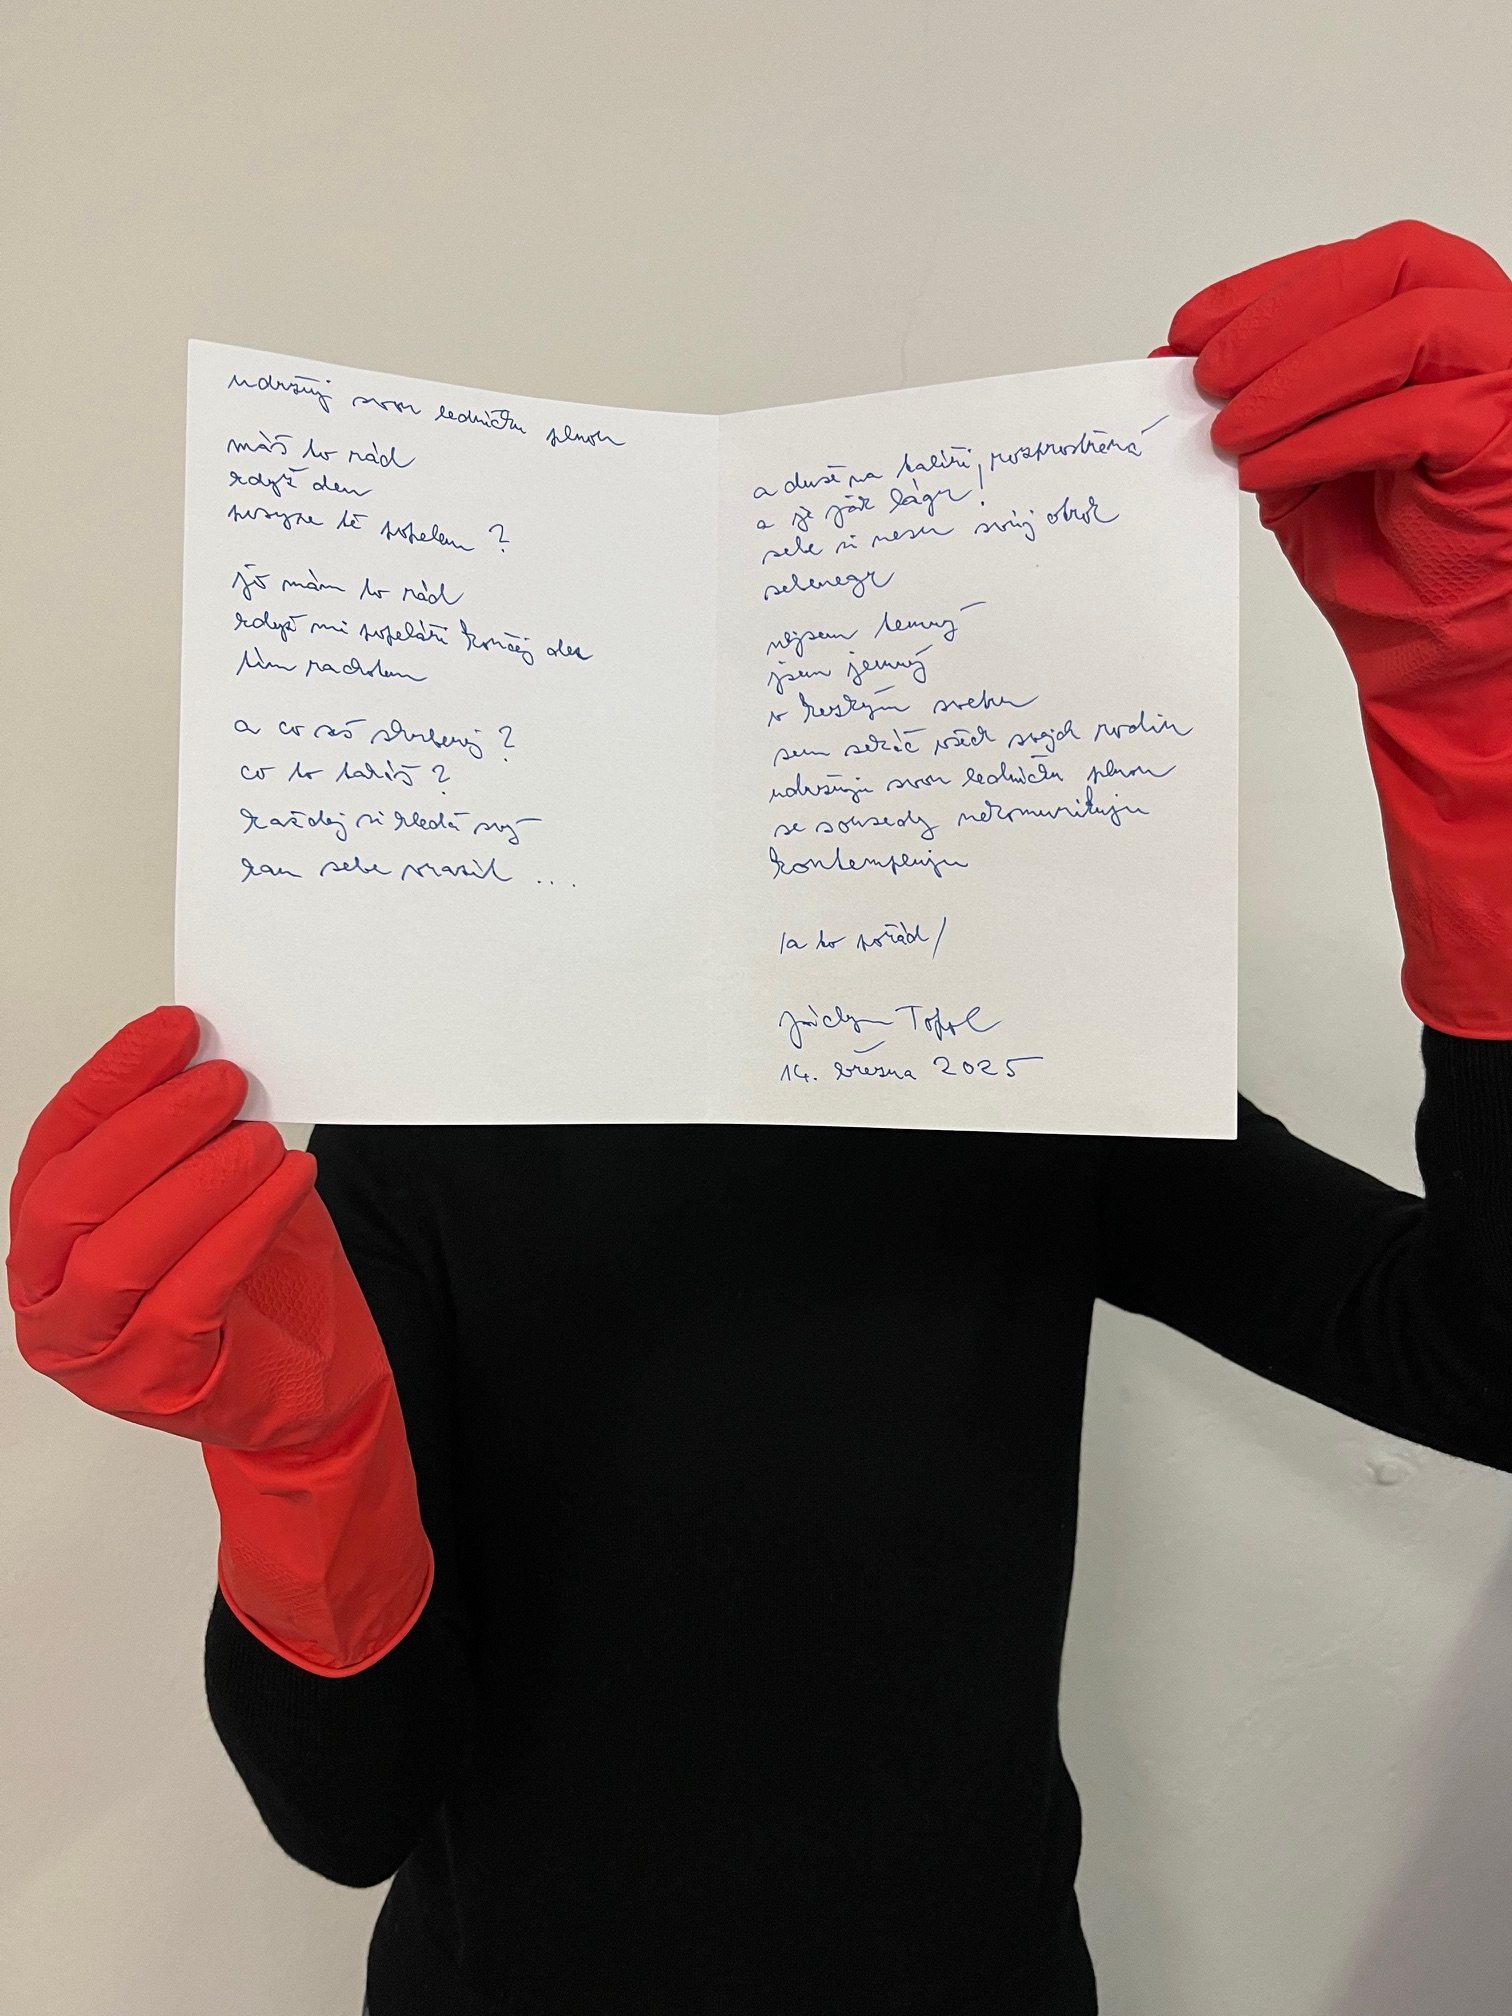 udržuj svou ledničku plnou
máš to rád
když den
posype tě popelem ?
jó mám to rád
když mi popeláři končej den
tím rachotem
a co seš skrblenej ?
co to taháš ?
každej si hledá svý
kam sebe vrazit ....
a duší na talíři rozprostřená
a je jak lágr!
sebe si nesu svůj obrok
sebenegr
nejsem temný
jsem jemný
v hezkým svetru
sem sekáč všech svejch rodin
udržuju svou ledničku plnou
se sousedy nekomunikuju
kontempluju
/a to pořád/
Jáchym Topol
14. března 2025